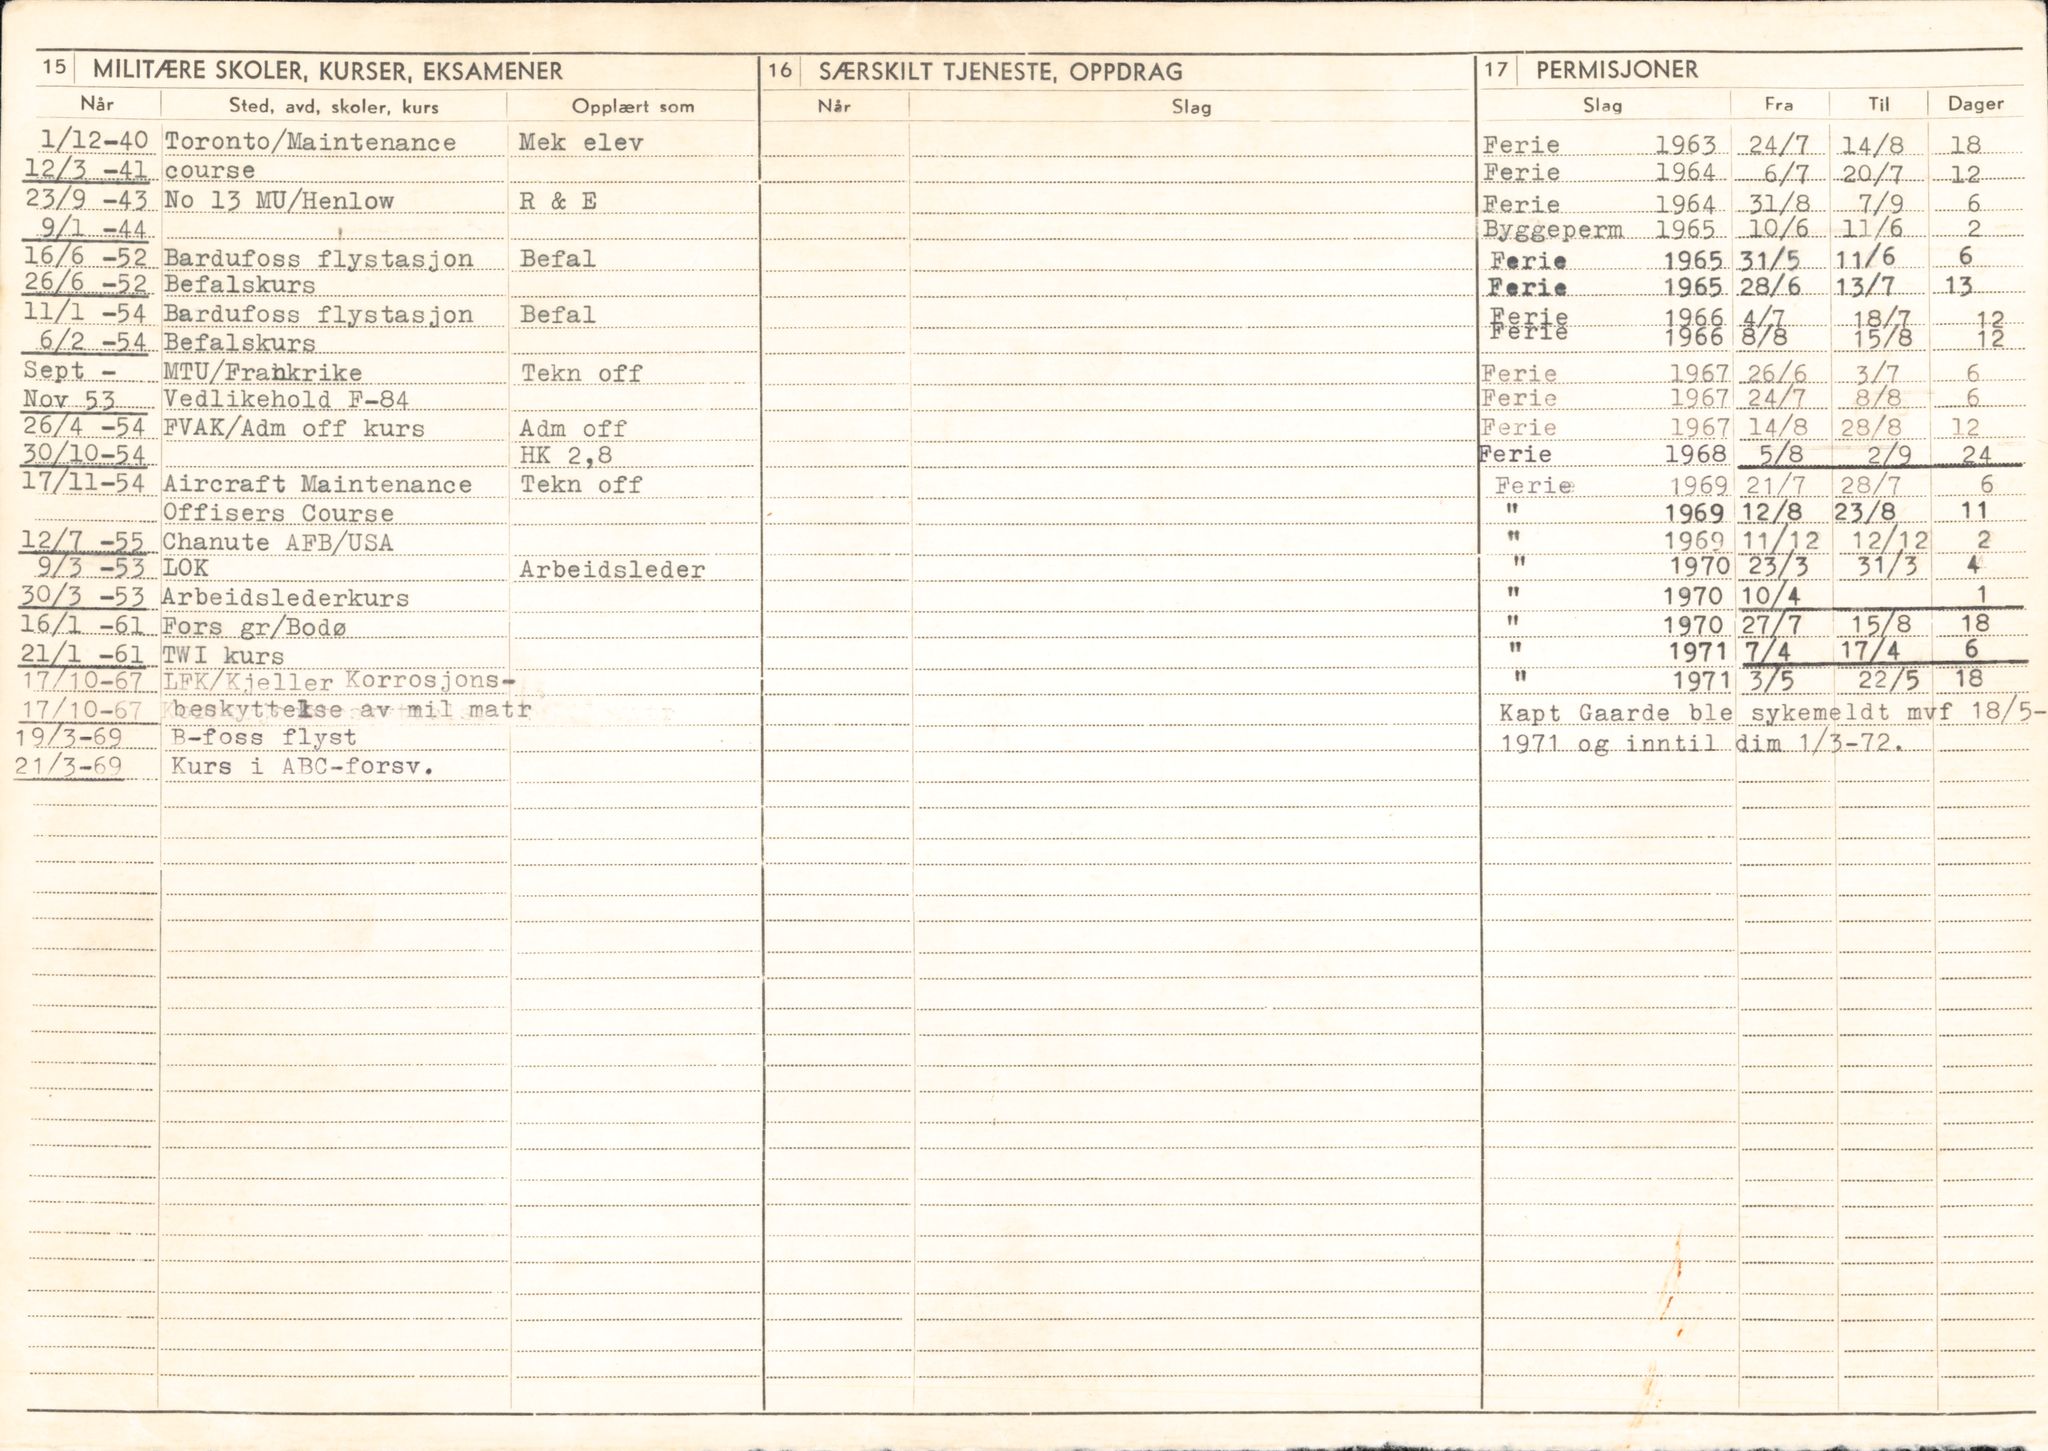 15 MILITÆRE SKOLER, KURSER, EKSAMENER
Når Sted, avd, skoler, kurs Opplært som
1/12-40 Toronto/Maintenance Mek elev
12/3 -41 course
23/9 -43 No 13 MU/Henlow R & E
9/1 -44
16/6 -52 Bardufoss flystasjon Befal
26/6 -52 Befalskurs
11/1 -54 Bardufoss flystasjon Befal
6/2 -54 Befalskurs
Sept - MTU/Frankrike Tekn off
Nov 53 Vedlikehold F-84
26/4 -54 FVAK/Adm off kurs Adm off
30/10-54 HK 2,8
17/11-54 Aircraft Maintenance Tekn off
Offisers Course
12/7 -55 Chanute AFB/USA
9/3 -53 LOK Arbeidsleder
30/3 -53 Arbeidslederkurs
16/1 -61 Fors gr/Bodø
21/1 -61 TWI kurs
17/10-67 LFK/Kjeller Korrosjons-
17/10-67 beskyttelse av mil matr
19/3-69 B-foss flyst
21/3-69 Kurs i ABC-forsv.
16 SÆRSKILT TJENESTE, OPPDRAG
Når Slag
17 PERMISJONER
Slag Fra Til Dager
Ferie 1963 24/7 14/8 18
Ferie 1964 6/7 20/7 12
Ferie 1964 31/8 7/9 6
Byggeperm 1965 10/6 11/6 2
Ferie 1965 31/5 11/6 6
Ferie 1965 28/6 13/7 13
Ferie 1966 4/7 18/7 12
Ferie 1966 8/8 15/8 12
Ferie 1967 26/6 3/7 6
Ferie 1967 24/7 8/8 6
Ferie 1967 14/8 28/8 12
Ferie 1968 5/8 2/9 24
Ferie 1969 21/7 28/7 6
" 1969 12/8 23/8 11
" 1969 11/12 12/12 2
" 1970 23/3 31/3 4
" 1970 10/4 1
" 1970 27/7 15/8 18
" 1971 7/4 17/4 6
" 1971 3/5 22/5 18
Kapt Gaarde ble sykemeldt mvf 18/5-
1971 og inntil dim 1/3-72.